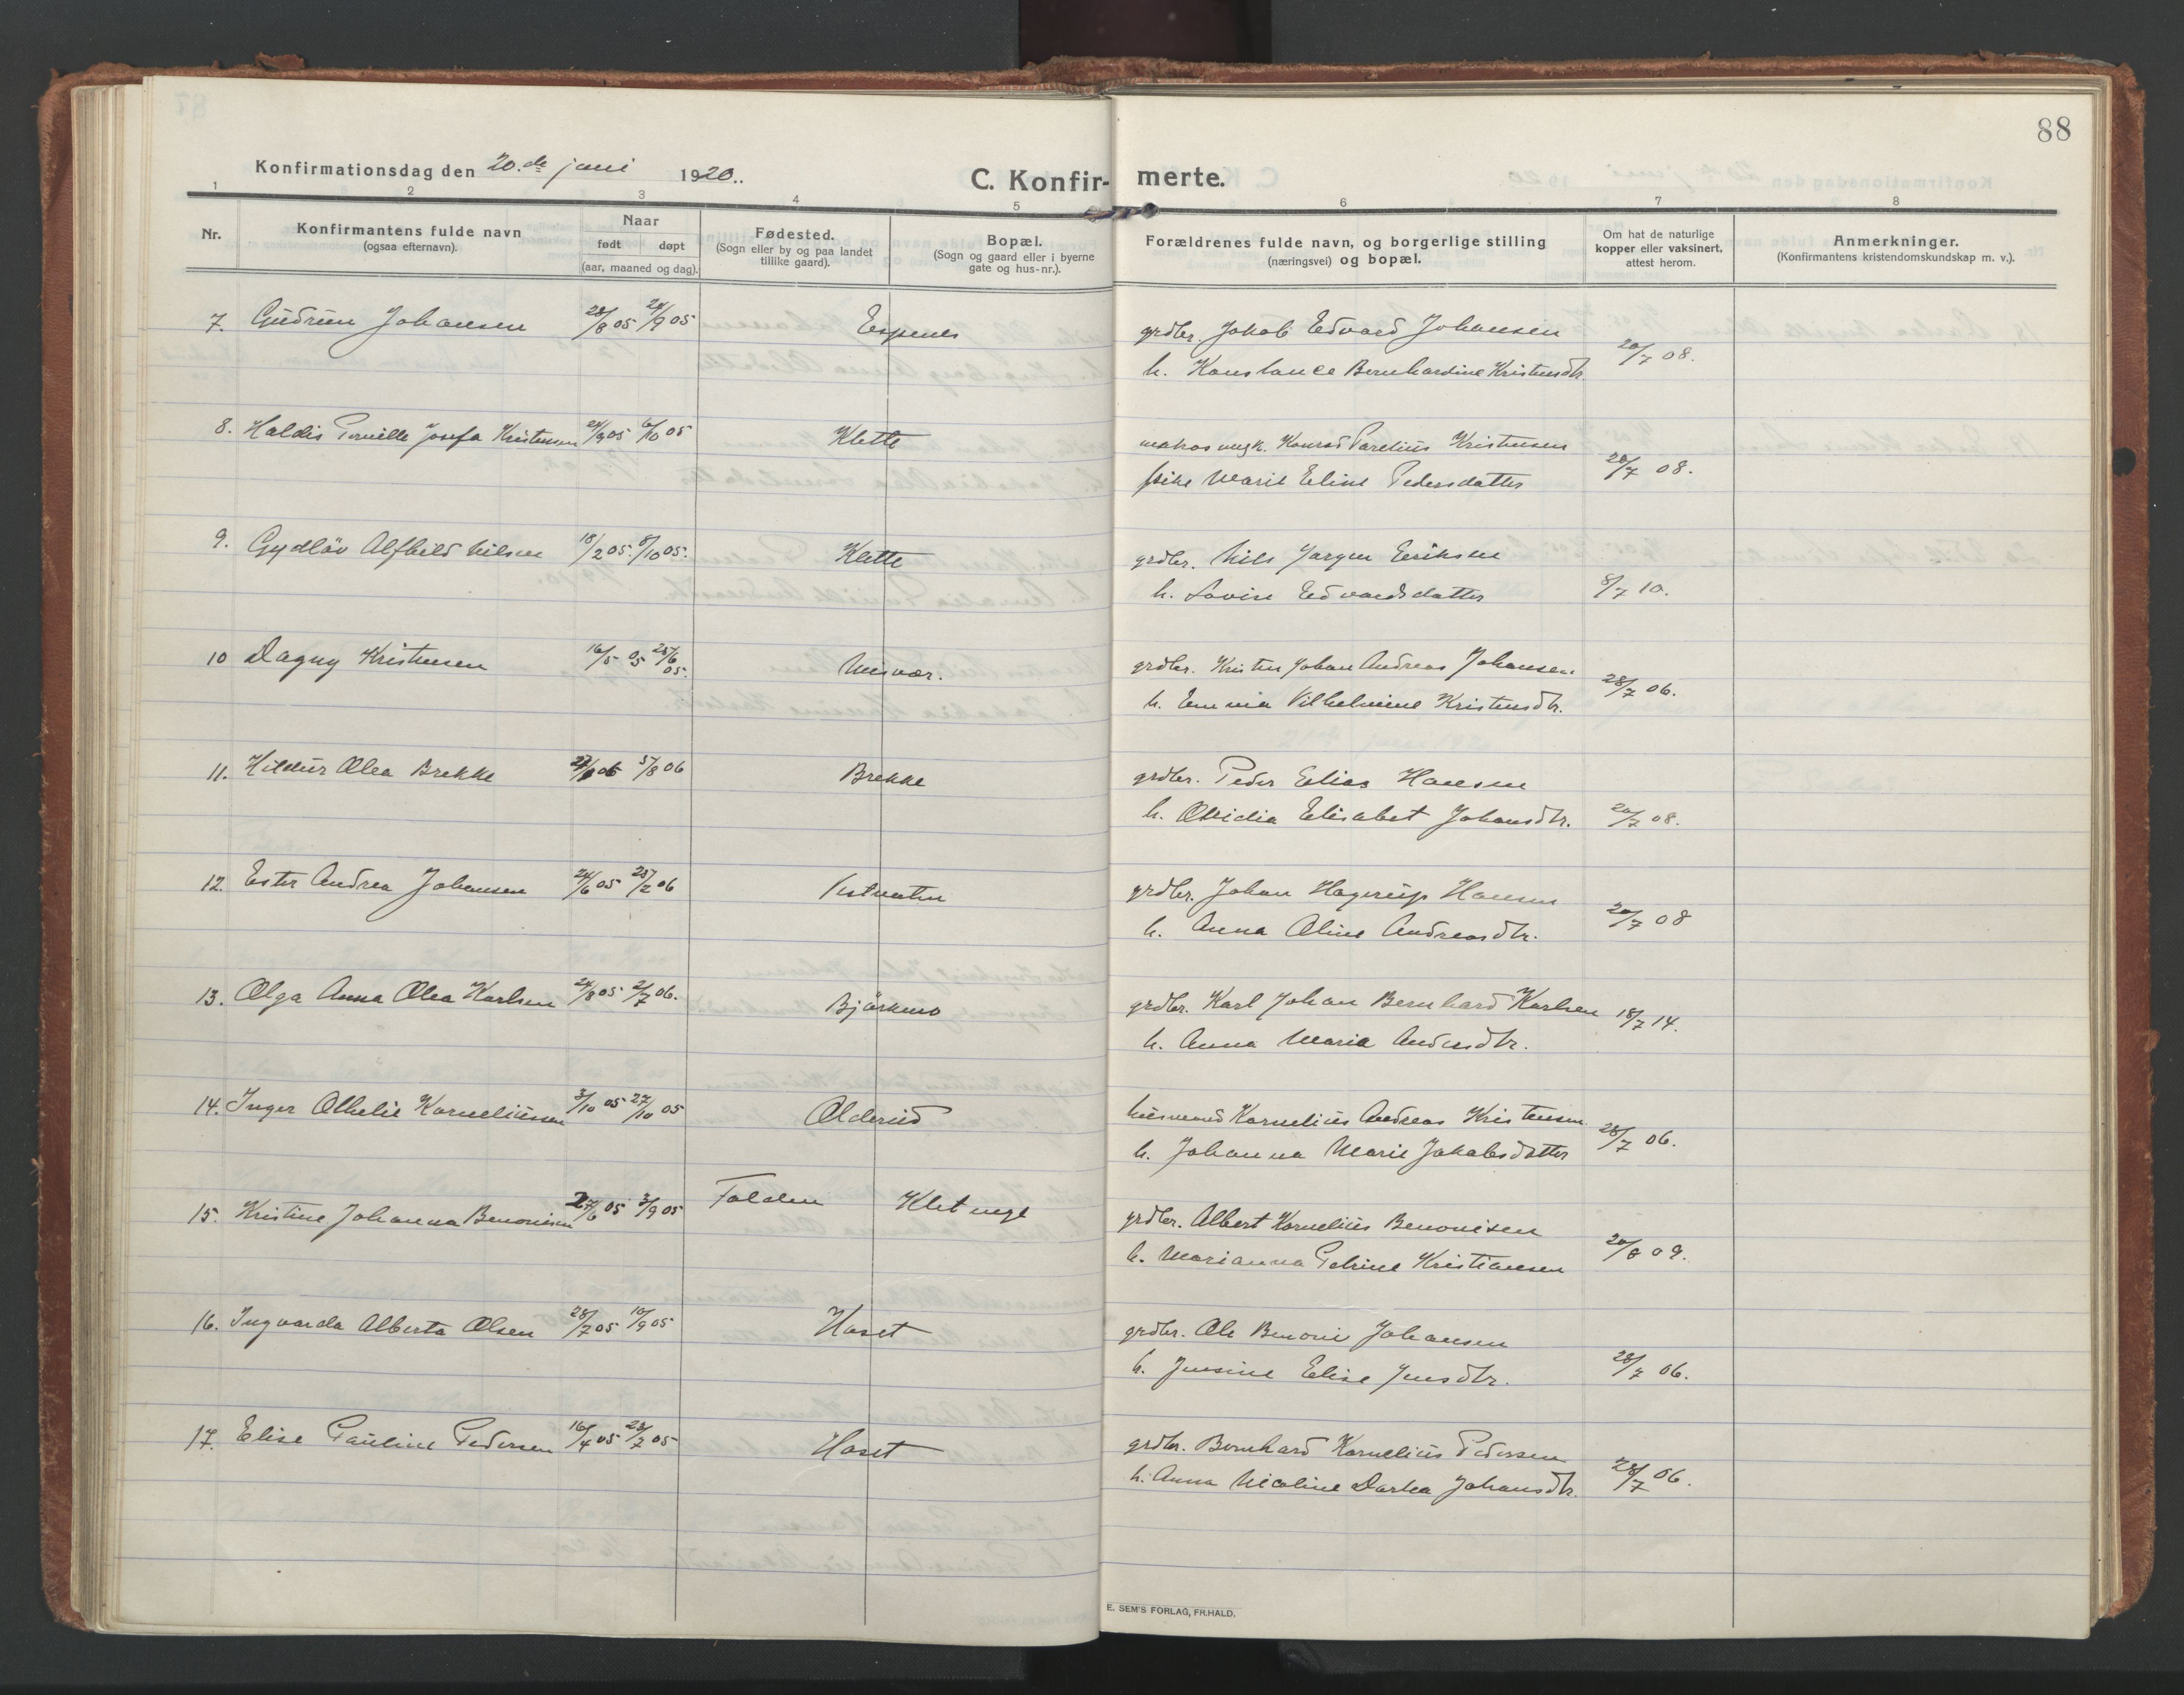 88
Konfirmationsdag den 20.de juni 1920.
C. Konfirmerte.
1 2 3 4 5 6 7 8
Nr.
Konfirmantens fulde navn
(ogsaa efternavn).
Naar
født døpt
(aar, maaned og dag).
Fødested.
(Sogn eller by og paa landet
tillike gaard).
Bopæl.
(Sogn og gaard eller i byerne
gate og hus-nr.).
Forældrenes fulde navn, og borgerlige stilling
(næringsvei) og bopæl.
Om hat de naturlige
kopper eller vaksinert,
attest herom.
Anmerkninger.
(Konfirmantens kristendomskundskap m. v.).
7. Gudrun Johansen 28/8 05 24/9 05 Espenes grdbr. Jakob Edvard Johansen
h. Konstance Bernhardine Kristensdtr. 20/7 08.
8. Haldis Pernille Josefa Kristensen 24/9 05 6/10 05 Klette Konrad Parelius Kristensen
pike Marie Eline Pedersdatter 20/7 08.
9. Gydløv Alfhild Nilsen 18/2 05. 8/10 05. Klette grdbr. Nils Jørgen Eriksen
h. Lovise Edvardsdatter 8/7 10.
10 Dagny Kristensen 16/5 05 25/6 05. grdbr. Kristen Johan Andreas Johansen
h. Emma Vilhelmine Kristensdtr. 28/7 06.
11. Hildur Olea Brekke 5/8 06 Brekke grdbr. Peder Elias Hansen
h. Ovidia Elisabet Johansdtr. 20/7 08.
12. Ester Andrea Johansen 24/6 05 25/2 06 Vestvatn grdbr. Johan Hagerup Hansen
h. Anna Oline Andreasdtr. 20/7 08
13. Olga Anna Olea Karlsen 24/8 05 2/7 06. Bjørkmo grdbr. Karl Johan Bernhard Karlsen 18/7 14.
h. Anna Maria Andersdtr.
14. Inger Othelie Korneliussen 3/10 05 27/10 05 Olderud husmand Kornelius Andreas Kristensen
h. Johanna Marie Jakobsdatter 28/7 06.
15. Kristine Johanna Benonisen 27/6 05 3/9 05 Folden Kletnege grdbr. Albert Kornelius Benonisen
h. Marianna Petrine Kristiansen 20/8 09.
16. Ingvarda Alberta Olsen 28/7 05 10/9 05 Haset grdbr. Ole Benoni Johansen
h. Jensine Elise Jensdtr. 28/7 06.
17. Elise Pauline Pedersen 16/4 05 23/7 05 Haset grdbr. Bernhard Kornelius Pedersen
h. Anna Nicoline Dorkea Johansdtr. 28/7 06.
E. SEM'S FORLAG, FR.HALD.